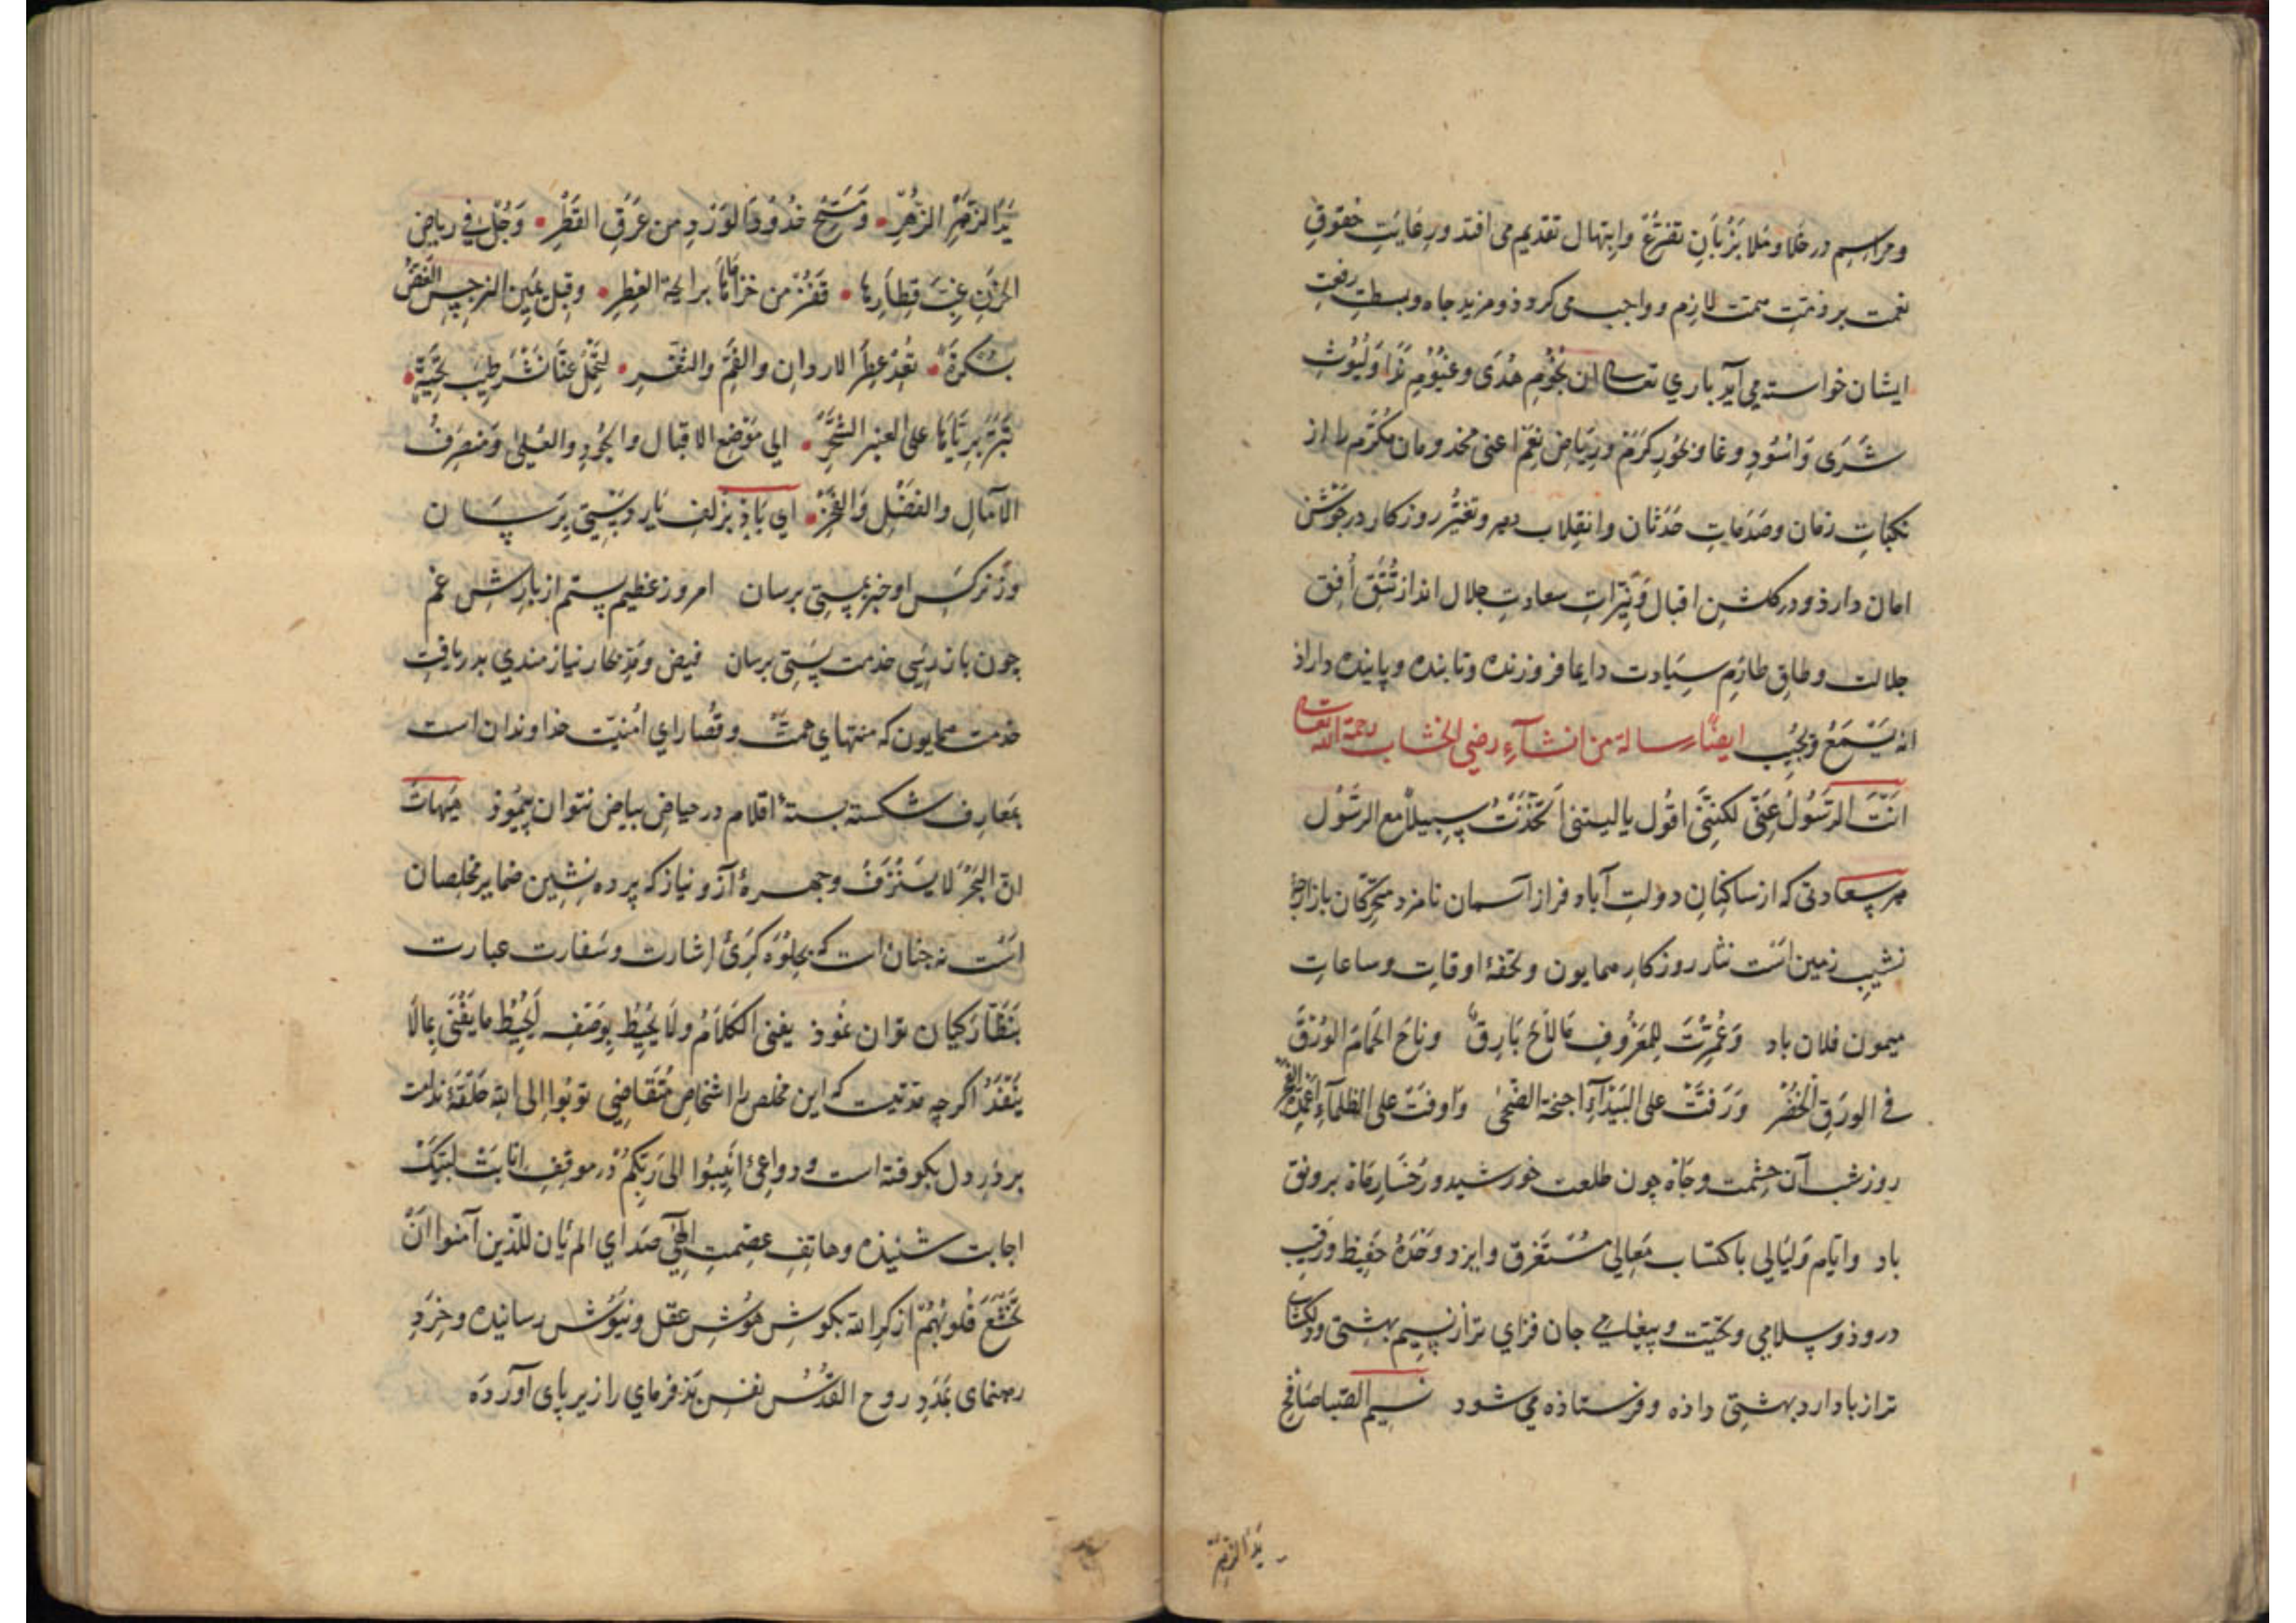 ومراسم در خلا و ملا بزبان تضرع وابتهال تقدیم می افتد ورعایت حقوق
نعمت بر ذمت همت لازم وواجب می کردذ ومزید جاه وبسطت رفعت
ایشان خواسته می آید باری تعالی ان نجوم هدی وغیوم ندا ولیوث
شری واسود وغا وبحور کرم وریاض نعم اعنی مخدومان مکرم را از
نکبات زمان وصدمات حدثان وانقلاب دهر وتغیر روزکار در جوشن
امان دارذ ودر کلشن اقبال ونیرات سعادت جلال انداز تتق أفق
جلالت وطاق طارم سیادت دایما فروزنده وتابنده وپاینده داراذ
انه یسمع ویجیب ایضا رسالة من انشآء رضی الخشاب رحمة الله تعالی
انت الرسول عنی لکننی اقول یا لیتنی اتخذت سبیلا مع الرسول
هر سعادتی که از ساکنان دولت آباد فراز آسمان نامزد متحرکان بازار
نشیب زمین است نثار روزکار همایون وتحفهٔ اوقات وساعات
میمون فلان باد وعمرت للمعروف مالاح بارق وناح الحمام الورق
فی الورق الخضر ورفت علی البیدآء اجنحة الضحی واوفت علی الظلمآء اعمدة الفجر
روز شب آن حشمت وجاه چون طلعت خورشید ورخسار ماه بر رونق
باد وایام ولیالی باکتساب معالی مستغرق وایزد وحده حفیظ ورقیب
دروذ وسلامی وتحیت وپیغامی جان فزای تر از نسیم بهشتی ودلکشا
تر از باد اردیبهشتی داذه وفرستاذه می شود نسیم الصبا صافح
ید الزهر
ید الزهر الزهر ومسح خدود الورد من عرق القطر وجل فی ریاض
الحزن غب قطارها ففز من خزاماها برایحة العطر وقبل بعین النرجس الغض
بکرة تعد عطر الاردان والفم والثغر لتحمل عنا نشر طیب تحیة
تبر بریاها علی العنبر الشحر الی موضع الاقبال والجود والعلی ومنصرف
الآمال والفضل والفخر ای باذ بزلف یار دستی برسان
وز نرکس او خبر بمستی برسان امروز عظیم پستم از بارش غم
چون باز رسی خدمت پستی برسان فیض ومد بحار نیازمندی بدریافت
خدمت همایون که منتهای همت وقصارای امنیت خداوندان است
بمعارف شکسته بستهٔ اقلام در حیاض بیاض نتوان پیموذ هیهات
ان البحر لا یستنزف وچهرهٔ آز ونیاز که پرده نشین ضمایر مخلصان
است نه جنان است که بجلوه کری اشارت وسفارت عبارت
بنظارکیان توان نموذ یفنی الکلام ولا یحیط بوصفه لیحیط ما یفنی بما لا
ینفد اکرچه مدتیست که این مخلص را اشخاص متقاضی توبوا الی الله حلقهٔ ندامت
بر در دل بکوفته است ودواعی انیبوا الی ربکم در موقف انابت لبیک
اجابت شنیذه وهاتف عصمت الهی صدای الم یان للذین آمنوا ان
تخشع قلوبهم لذکر الله بکوش هوش عقل ونیوش رسانیده وخرد
رهنمای بمدد روح القدس نفس بذ فرمای را زیر پای آورده